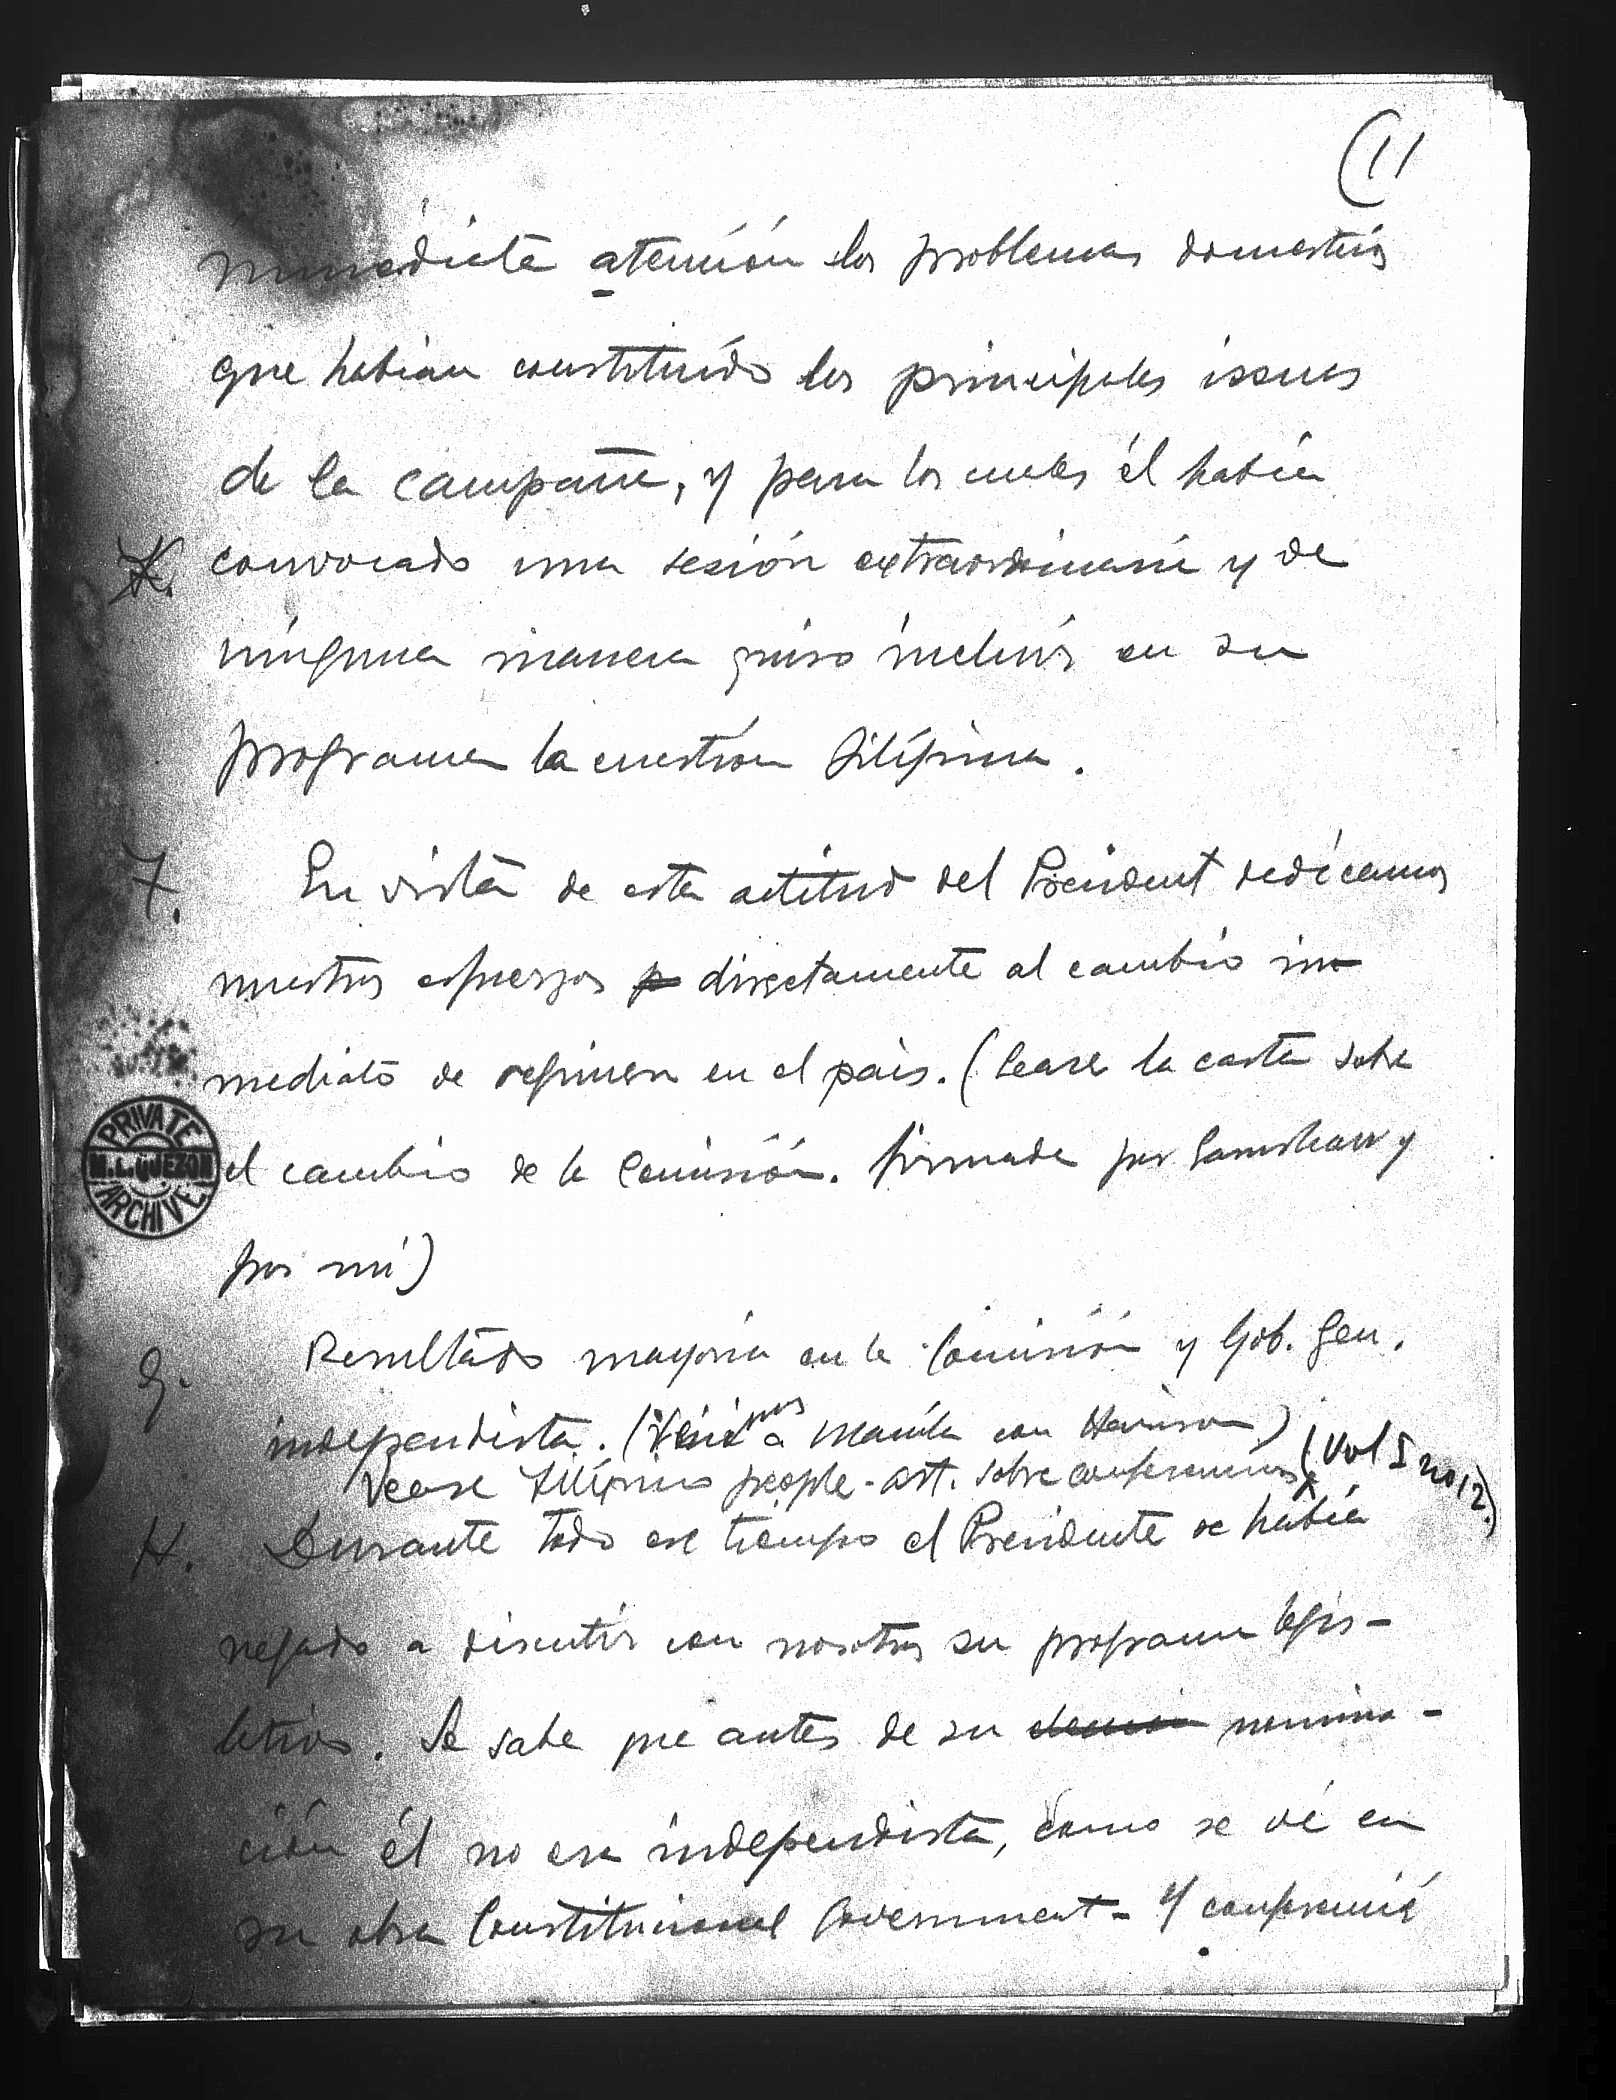 (11
inmediata atención los problemas domesticos
que habian constituído los principales issues
de la campaña, y para los cuales él había
K. convocado una sesión extraordinaria y de
ninguna manera quiso incluir en su
programa la cuestion filipina.
7. En vista de esta actitud del President dedicamos
nuestros esfuerzos p directamente al cambio in-
mediato de regimen en el pais. (Lease la carta sobre
el cambio de la Comisión. firmada por Earnshaw y
por mí)
PRIVATE
M. L. QUEZON
ARCHIVE
G. Resultado mayoria en la Comisión y Gob. Gen.
independista. (Venimos a Manila con Harrison)
Vease Filipino people - art. sobre conferencias (Vol I no 12.)
H. Durante todo ese tiempo el Presidente se había
negado a discutir con nosotros su programa legis-
lativo. Se sabe que antes de su elección nomina-
ción él no era independista, como se vé en
su obra Constitucional Government - Y conferencié